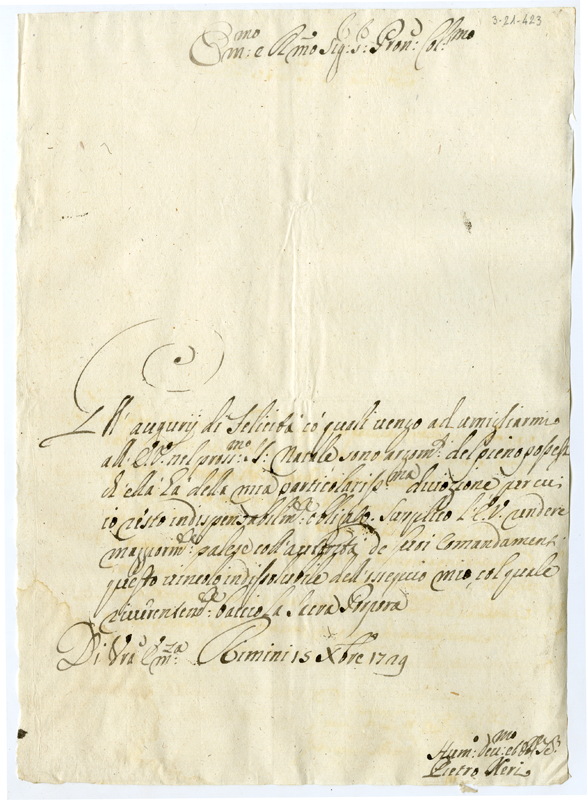 3-21-423
Em:mo e R.mo Sig: P: Pron: Col:mo
Gl' augurij di Felicità có quali vengo ad umigliarmi
all' E.V. nel pros:mo S: Natale sono argom:ti del pieno possesso
ch' ella hà della mia particolariss:ma divozione per cui
io resto indispensabilm:te obligato. Suplico l' E.V. rendere
maggiorm:te palese coll' autorità de suoi Comandamenti
questo vincolo indissolubile dell' ossequio mio, col quale
riverentem:te baccio la Sacra Porpora
Di Vrã Em:za Rimini 15 Xbre 1719
Hum: dev:mo et obb: S:
Pietro Neri